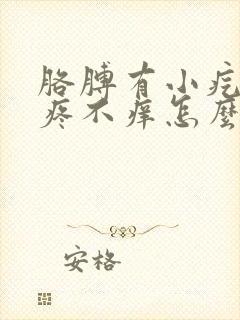 胳膊有小疙
疼不痒怎麼
安格